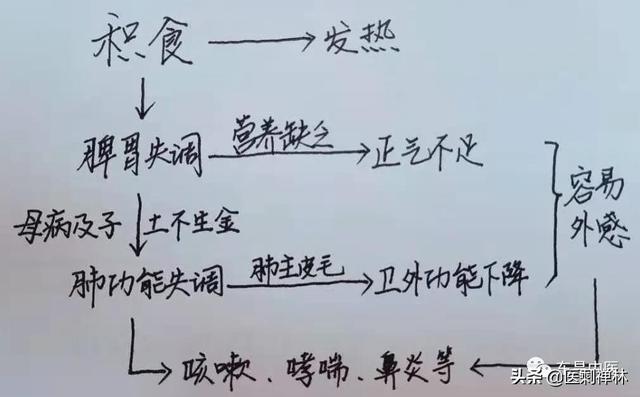 积食 → 发热
脾胃失调 营养缺乏 → 正气不足
容易
外感
母病及子 土不生金
肺功能失调 肺主皮毛 → 卫外功能下降
咳嗽、哮喘、鼻炎等
东昌中医
头条@医刺禅林